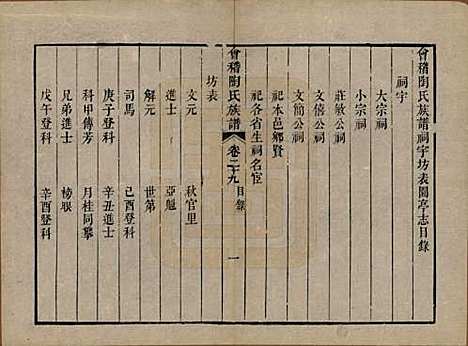 會稽陶氏族譜祠宇坊表園亭志目錄
祠宇
大宗祠
小宗祠
莊敏公祠
文僖公祠
文簡公祠
祀本邑鄉賢
祀各省生祠名宦
會稽陶氏族譜 卷二十九 目錄 一
坊表
文元 秋官里
進士 亞魁
解元 世第
司馬 己酉登科
庚子登科 辛丑進士
科甲傳芳 月桂同攀
兄弟進士 榜眼
戊午登科 辛酉登科